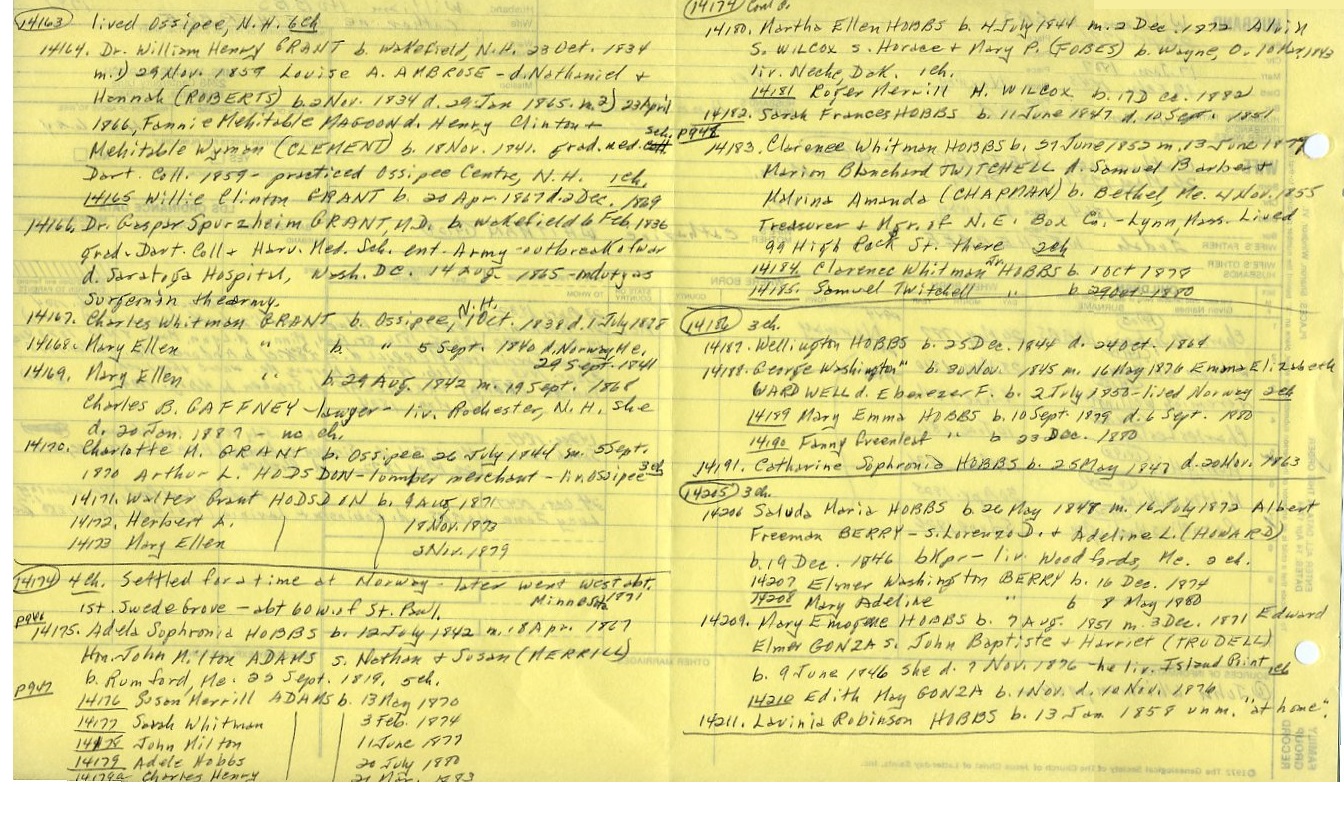 14163 lived Ossipee, N.H. 6ch
14164. Dr. William Henry GRANT b. Wakefield, N.H. 23 Oct. 1834
m.1) 29 Nov. 1859 Louise A. AMBROSE - d. Nathaniel +
Hannah (ROBERTS) b. 2 Nov. 1834 d. 29 Jan 1865. m.2) 23 April
1866, Fannie Mehitable MAGOON d. Henry Clinton +
Mehitable Wyman (CLEMENT) b. 18 Nov. 1841. grad. med. sch.
Dart. Coll. 1859 - practiced Ossipee Centre, N.H. 1ch.
14165 Willie Clinton GRANT b. 20 Apr. 1867 d. 2 Dec. 1869
14166. Dr. Gaspar Spurzheim GRANT, M.D. b. Wakefield 6 Feb. 1836
grad. Dart. Coll + Harv. Med. Sch. ent. Army - outbreak of war
d. Saratoga Hospital, Wash. DC. 14 Aug. 1865 - on duty as
surgeon in the army.
14167. Charles Whitman GRANT b. Ossipee, N.H. 1 Oct. 1838 d. 1 July 1875
14168. Mary Ellen " b. " 5 Sept. 1840 d. Norway Me.
29 Sept. 1841
14169. Mary Ellen " b. 29 Aug. 1842 m. 19 Sept. 1868
Charles B. GAFFNEY - lawyer - liv. Rochester, N.H. She
d. 20 Jan. 1887 - no ch.
14170. Charlotte H. GRANT b. Ossipee 26 July 1844 m. 5 Sept.
1870 Arthur L. HODSDON - lumber merchant - lin Ossipee 3ch
14171. Walter Grant HODSDON b. 9 Aug. 1871
14172. Herbert A. 18 Nov. 1873
14173 Mary Ellen 2 Nov. 1879
14174 4ch. Settled for a time at Norway - later went west abt. 1871
1st. Swede Grove - abt 60 w. of St. Paul, Minnesota
p946
14175. Adela Sophronia HOBBS b. 12 July 1842 m. 8 Apr. 1867
Hon. John Milton ADAMS s. Nathan + Susan (MERRILL)
b. Rumford, Me. 22 Sept. 1819. 5ch.
p947
14176 Susan Merrill ADAMS b. 13 May 1870
14177 Sarah Whitman 3 Feb. 1874
14178 John Milton 11 June 1877
14179 Adele Hobbs 20 July 1880
14179a Charles Henry 21 Mar. 1883
14174 Cont'd.
14180. Martha Ellen HOBBS b. 4 July 1844 m. 2 Dec. 1872 Alvin
S. WILCOX s. Horace + Mary P. (FOBES) b. Wayne, O. 10 Mar. 1843
liv. Neche, Dak. 1ch.
14181 Roger Merrill H. WILCOX b. 17 Dec. 1882
14182. Sarah Frances HOBBS b. 11 June 1847 d. 10 Sept. 1851
p948
14183. Clarence Whitman HOBBS b. 27 June 1852 m. 13 June 1877
Marion Blanchard TWITCHELL d. Samuel Barber +
Malrina Amanda (CHAPMAN) b. Bethel, Me. 4 Nov. 1855
Treasurer + Mgr. of N.E. Box Co. - Lynn, Mass. Lived
99 High Rock St. there 2ch
14184. Clarence Whitman Jr. HOBBS b. 1 Oct 1878
14185. Samuel Twitchell " b. 29 Oct. 1880
14186 3ch.
14187. Wellington HOBBS b. 25 Dec. 1844 d. 24 Oct. 1864
14188. George Washington " b. 30 Nov. 1845 m. 16 May 1876 Emma Elizabeth
WARDWELL d. Ebenezer F. b. 2 July 1850 - lived Norway 2ch
14189 Mary Emma HOBBS b. 10 Sept. 1879 d. 6 Sept. 1880
14190 Fanny Greenleaf " b 23 Dec. 1880
14191. Catharine Sophronia HOBBS b. 25 May 1847 d. 20 Nov. 1863
14205 3ch.
14206 Saluda Maria HOBBS b. 26 May 1848 m. 16 July 1872 Albert
Freeman BERRY - s. Lorenzo D. + Adeline L. (HOWARD)
b. 19 Dec. 1846 bkpr - liv. Woodfords, Me. 2 ch.
14207 Elmer Washington BERRY b. 16 Dec. 1874
14208 Mary Adeline " b. 8 May 1880
14209. Mary Emogene HOBBS b. 7 Aug. 1851 m. 3 Dec. 1871 Edward
Elmer GONZA s. John Baptiste + Harriet (TRUDELL)
b. 9 June 1846 She d. 7 Nov. 1876 - he liv. Island Point 1ch
14210 Edith May GONZA b. 1 Nov. d. 10 Nov. 1876
14211. Lavinia Robinson HOBBS b. 13 Jan 1858 unm. "at home".